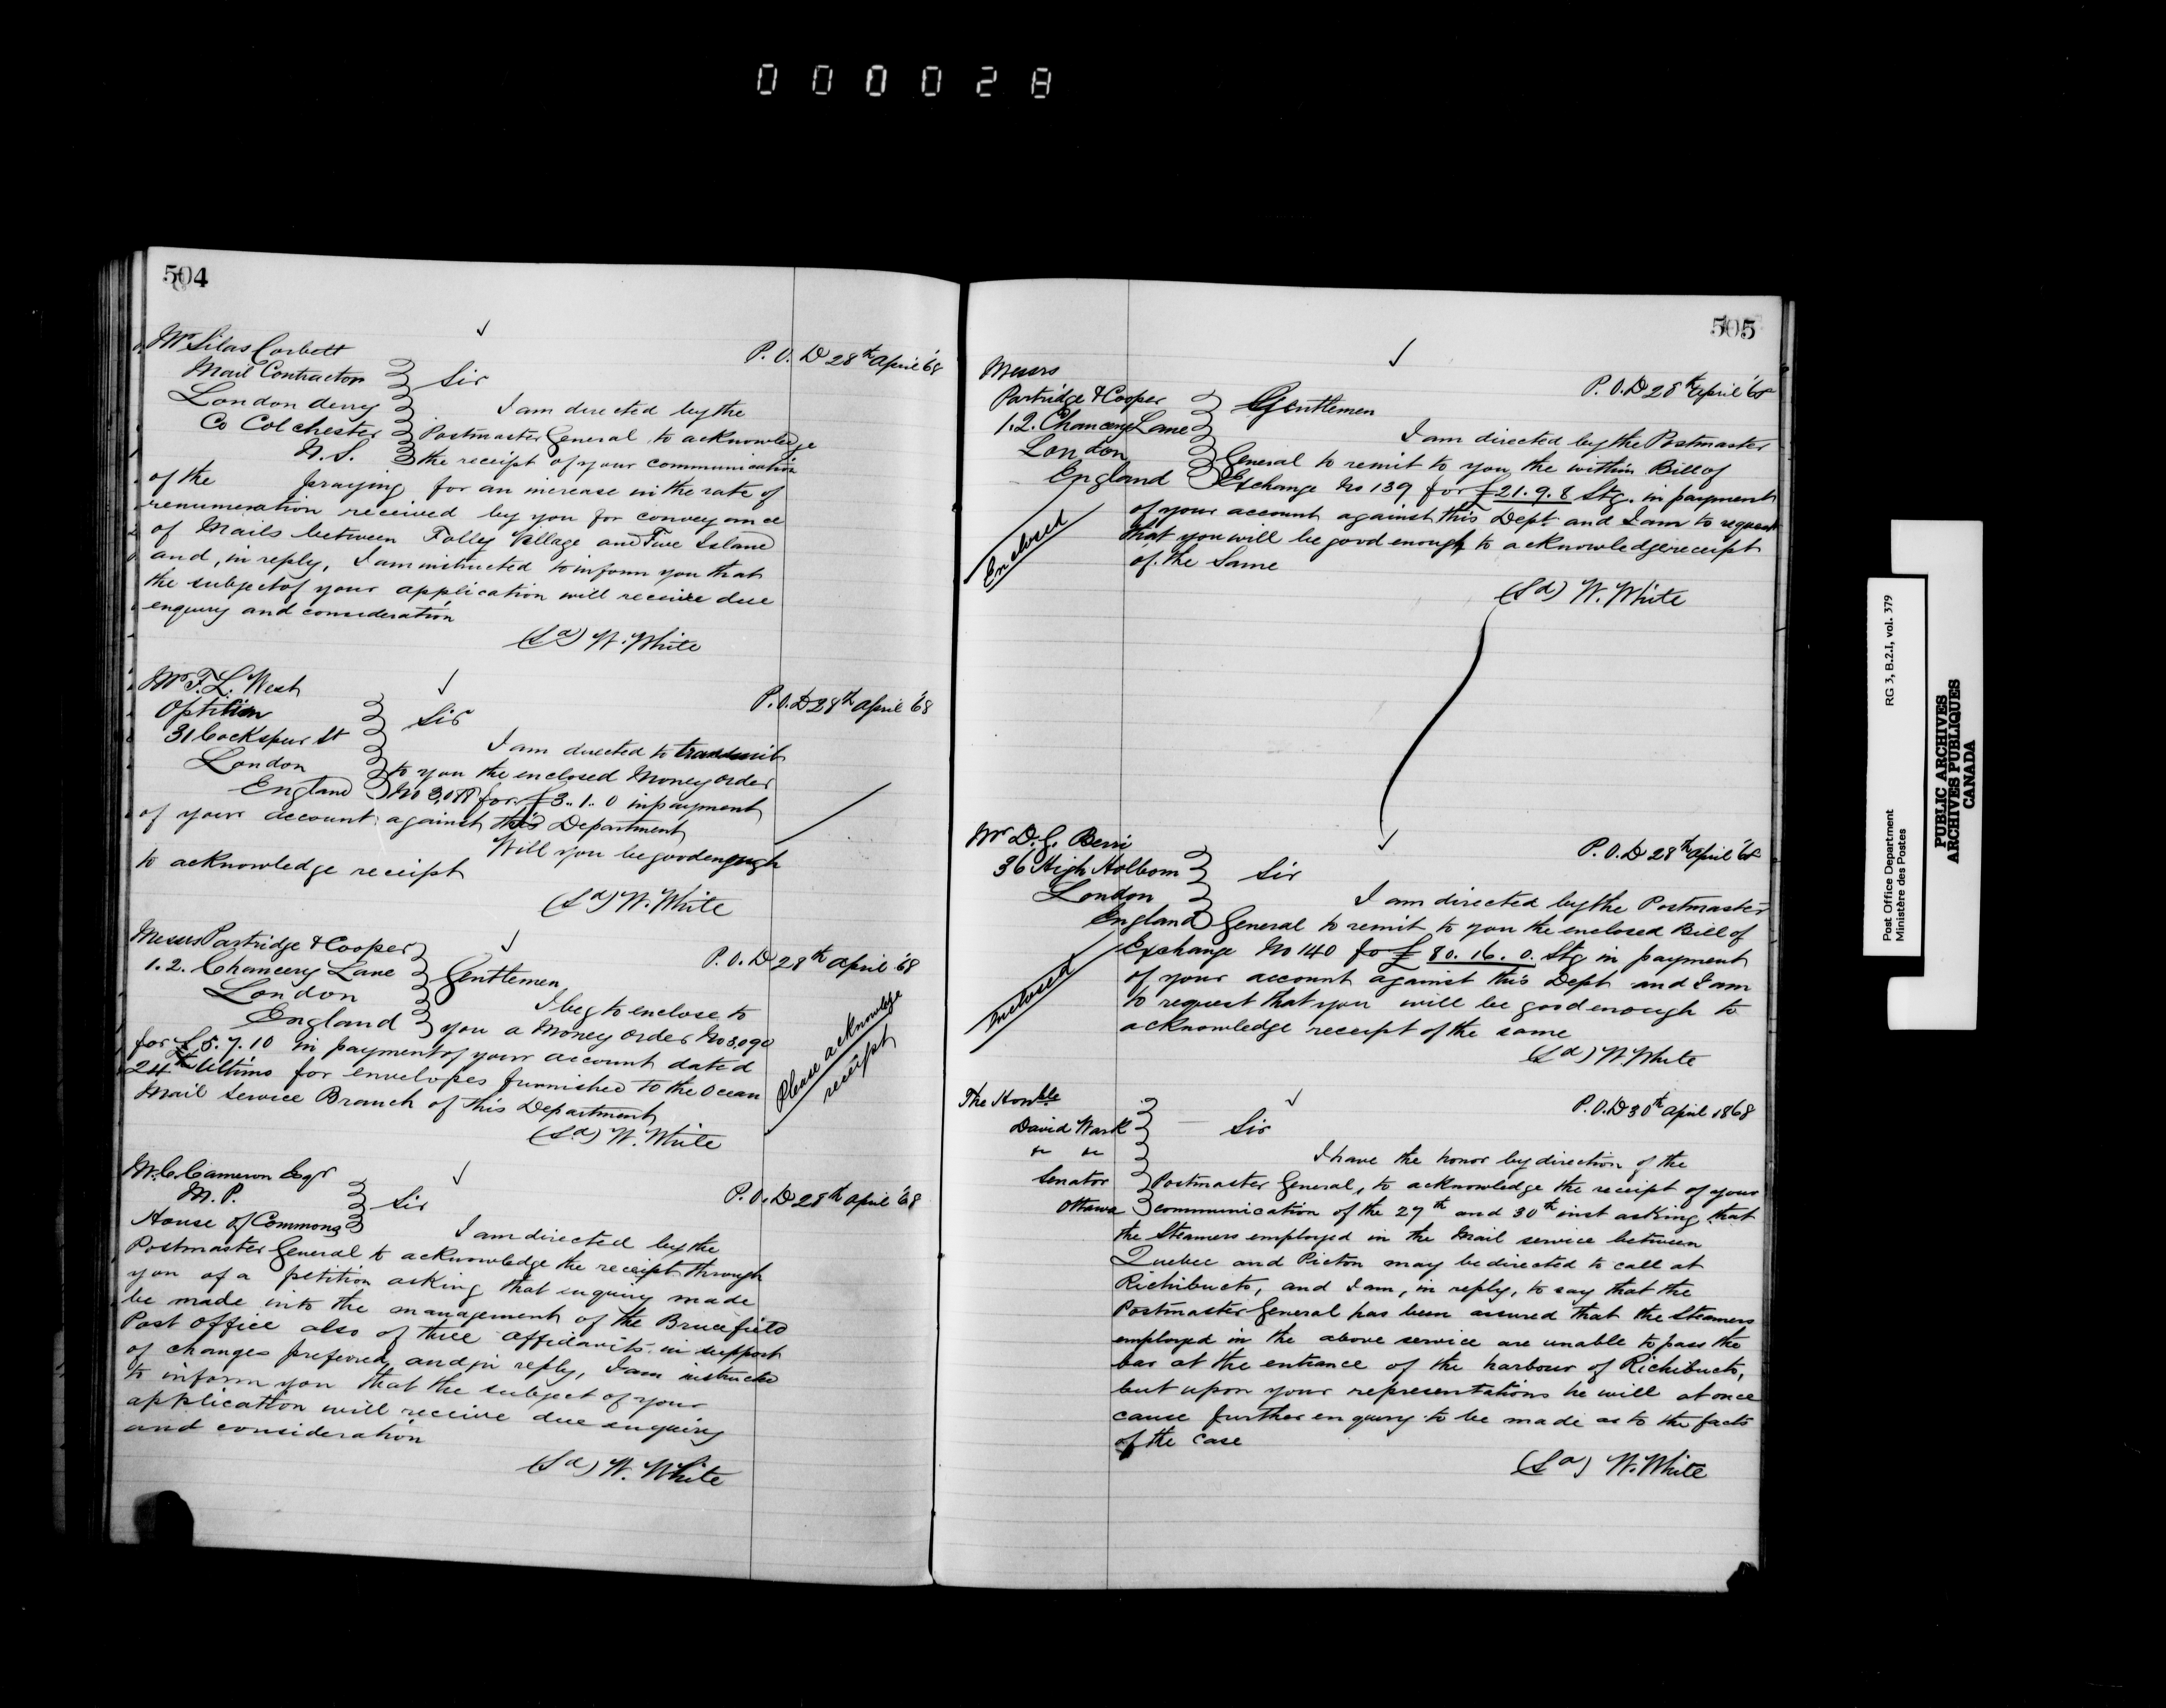 000028
504
Mr Silas Corbett
P.O.D 28th April '68
Mail Contractor
Sir
Londonderry
I am directed by the
Co Colchester
Postmaster General, to acknowledge
N.S.
the receipt of your communication
of the praying for an increase in the rate of
renumeration received by you for conveyance
of Mails between Folly Village and Five Island
and, in reply, I am instructed to inform you that
the subject of your application will receive due
enquiry and consideration
(Sd) W. White
Mr F.L. West
P.O.D 28th April '68
Optitian
Sir
31 Cockspur St
I am directed to transmit
London
to you the enclosed Money order
England
No for £3..1..0 in payment
of your account against this Department
Will you be good enough
to acknowledge receipt
(Sd) W. White
Messrs Partridge & Cooper
P.O.D 28th April '68
1.2. Chancery Lane
Gentlemen
London
I beg to enclose to
England
you a Money order No 3.090
for £5.7.10 in payment of your account dated
24th Ultimo for envelopes furnished to the Ocean
Mail Service Branch of this Department
Please acknowledge
receipt
(Sd) W. White
M.C. Cameron Esqr
P.O.D 28th April '68
M.P.
Sir
House of Commons
I am directed by the
Postmaster General to acknowledge the receipt through
you of a petition asking that enquiry made
be made into the management of the Brucefield
Post Office also of three affidavits in support
of changes preferred, and in reply, I am instructed
to inform you that the subject of your
application will receive due enquiry
and consideration
(Sd) W. White
505
Messrs
P.O.D 28th April '68
Partridge & Cooper
Gentlemen
1.2. Chancery Lane
I am directed by the Postmaster
London
General to remit to you the within Bill of
England
Exchange No 139 for £21.9.8 Stg. in payment
of your account against this Dept. and I am to request
that you will be good enough to acknowledge receipt
of the Same
Enclosed
(Sd) W. White
Mr D.G. Berri
P.O.D 28th April '68
36 High Holborn
Sir
London
I am directed by the Postmaster
England
General to remit to you the enclosed Bill of
Exchange No 140 fo £80.16.0. Stg in payment
of your account against this Dept and I am
to request that you will be good enough to
acknowledge receipt of the same
Enclosed
(Sd) W. White
The Honble
P.O.D 30th April 1868
David Wark
Sir
I have the honor by direction of the
Senator
Postmaster General, to acknowledge the receipt of your
Ottawa
communication of the 27th and 30th inst asking that
the Steamers employed in the Mail service between
Quebec and Picton may be directed to call at
Richibucto, and I am, in reply, to say that the
Postmaster General has been assured that the Steamers
employed in the above service are unable to pass the
bar at the entrance of the harbour of Richibucto,
but upon your representations he will at once
cause further enquiry to be made as to the facts
of the case
(Sd) W. White
Post Office Department
Ministère des Postes
RG 3, B.2.I, vol. 379
PUBLIC ARCHIVES
ARCHIVES PUBLIQUES
CANADA